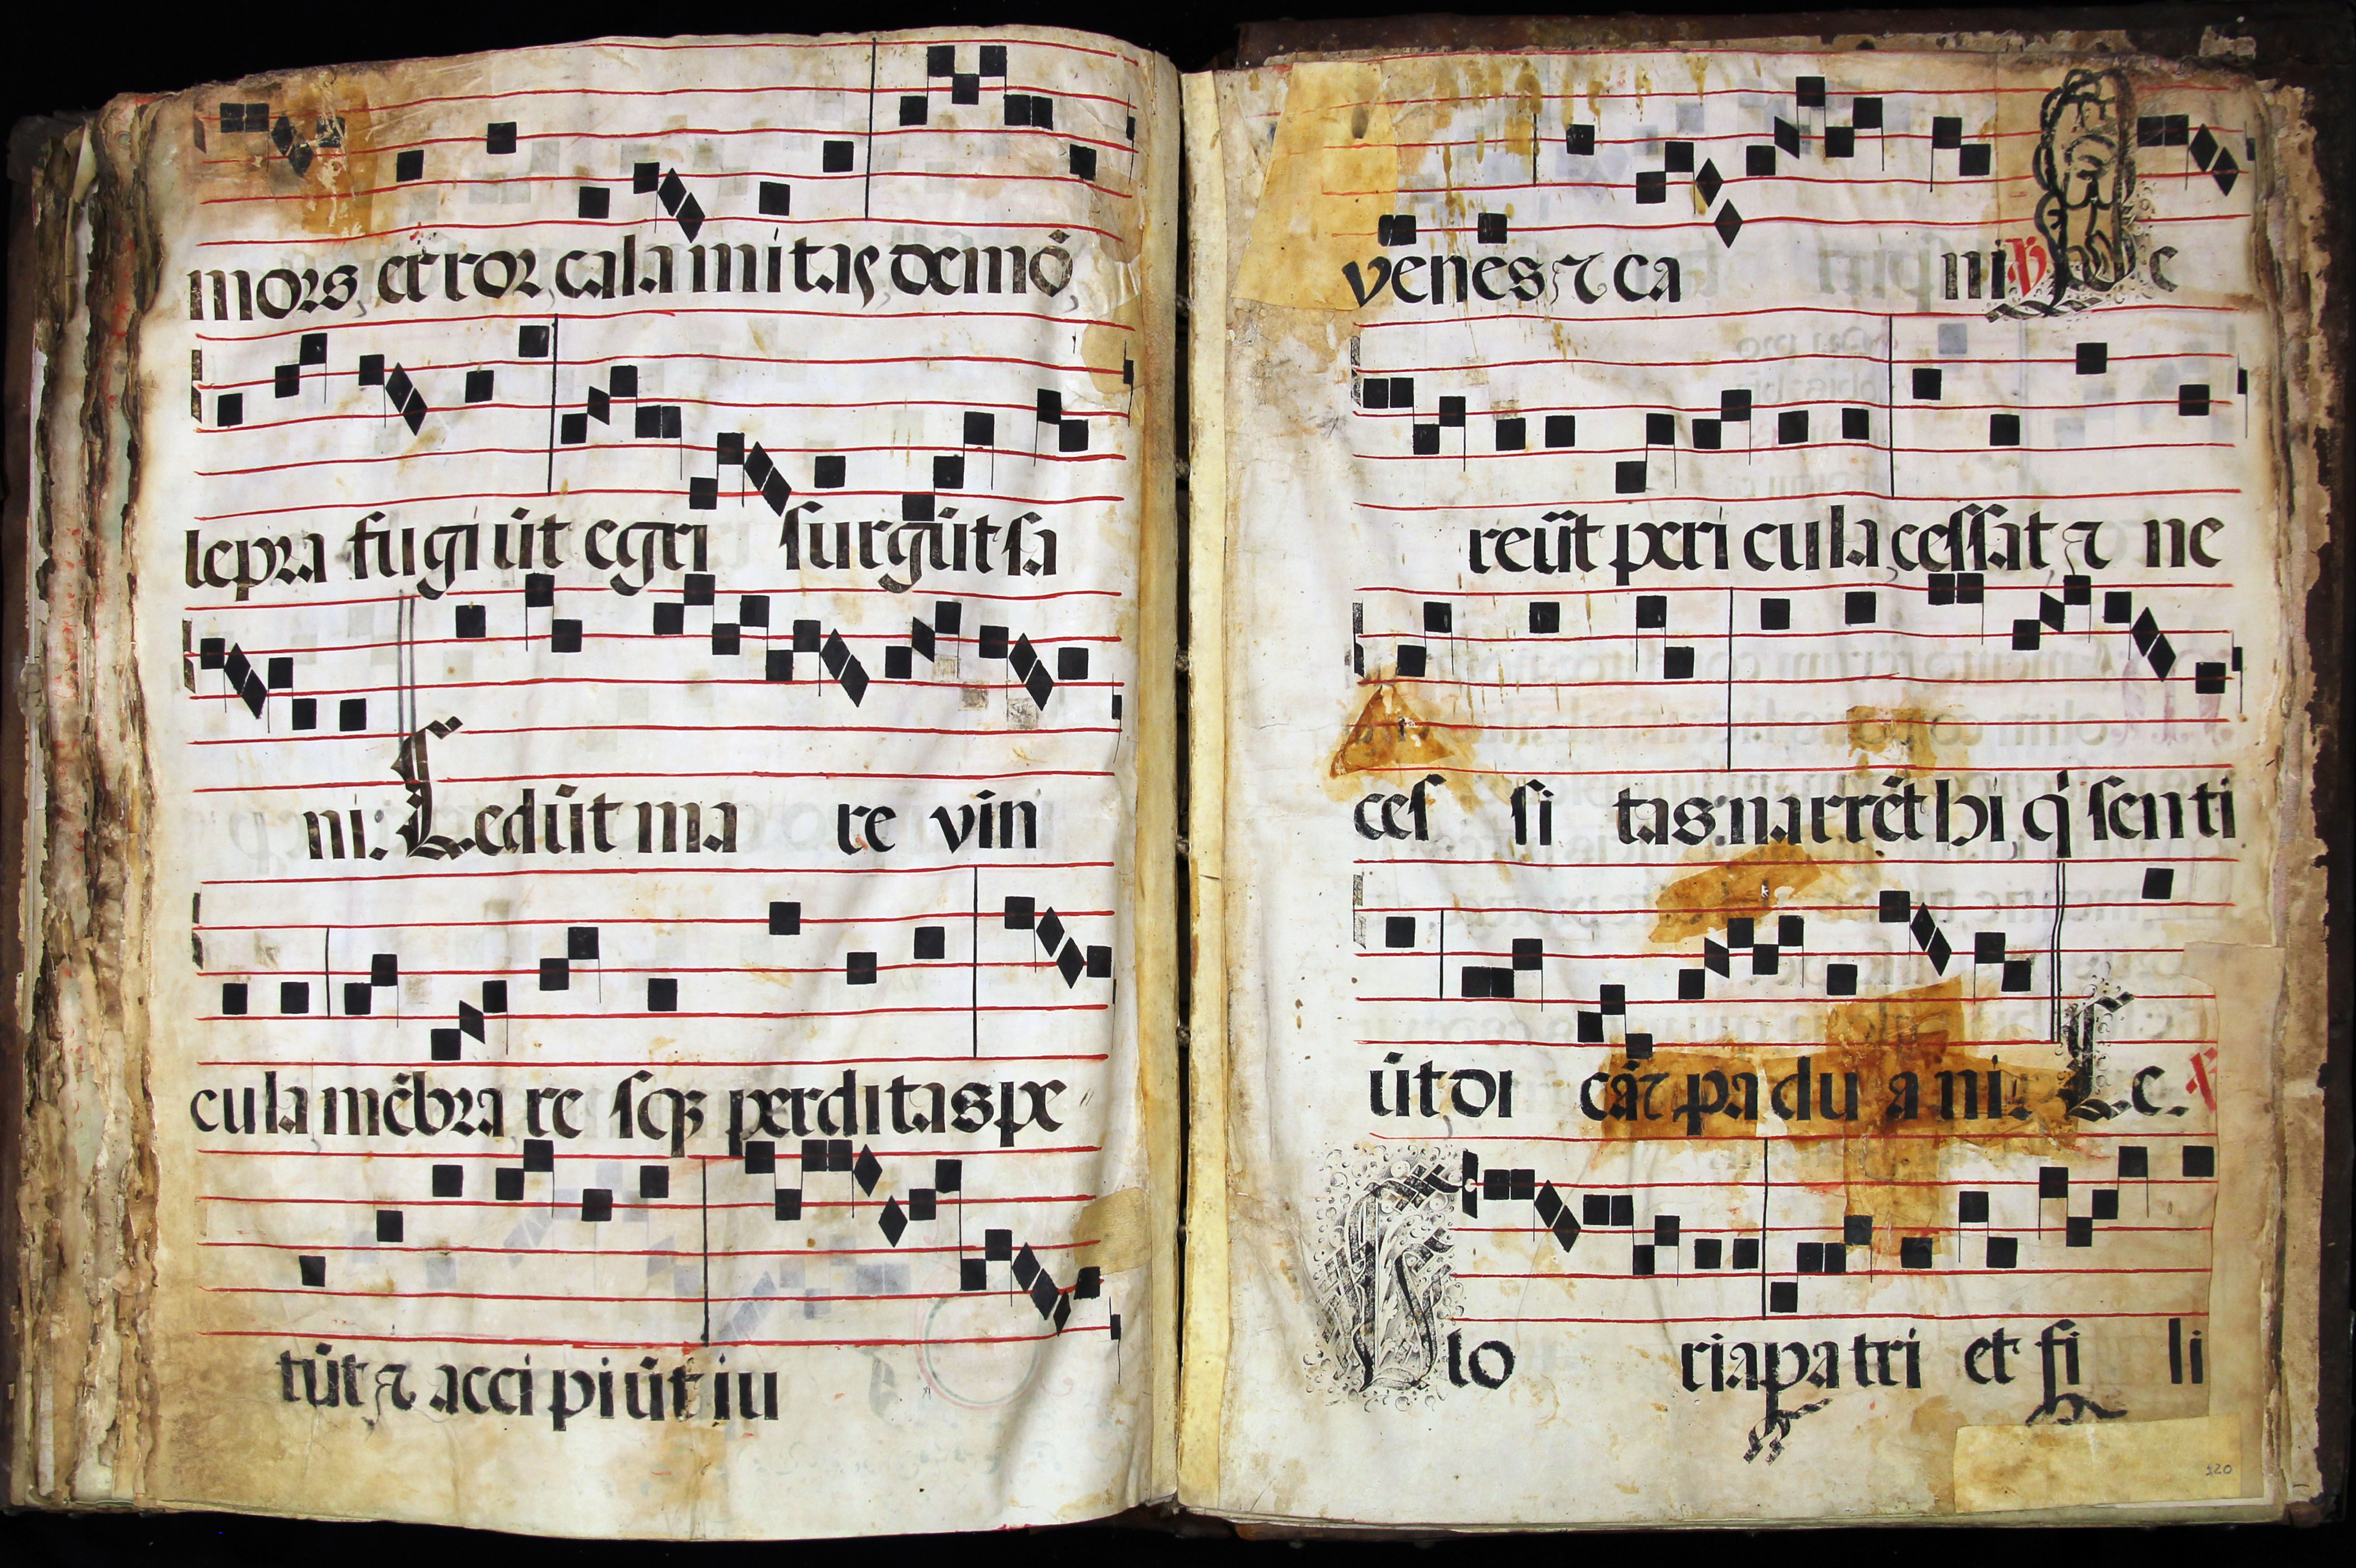 mors, error, calamitas, demō,
lepra fugiūt egri surgūt sa
ni: Cedūt ma re vin
cula mēbra re sqꝫ perditas pe
tūt, ⁊ accipiūt iu
venes ⁊ ca ni ℣ Pe
reūt pericula, cessat ⁊ ne
ces si tas: narrēt hi, q̇ senti
ūt di cāt padu ani. Ce. ℣
Glo ria patri et fi li
120